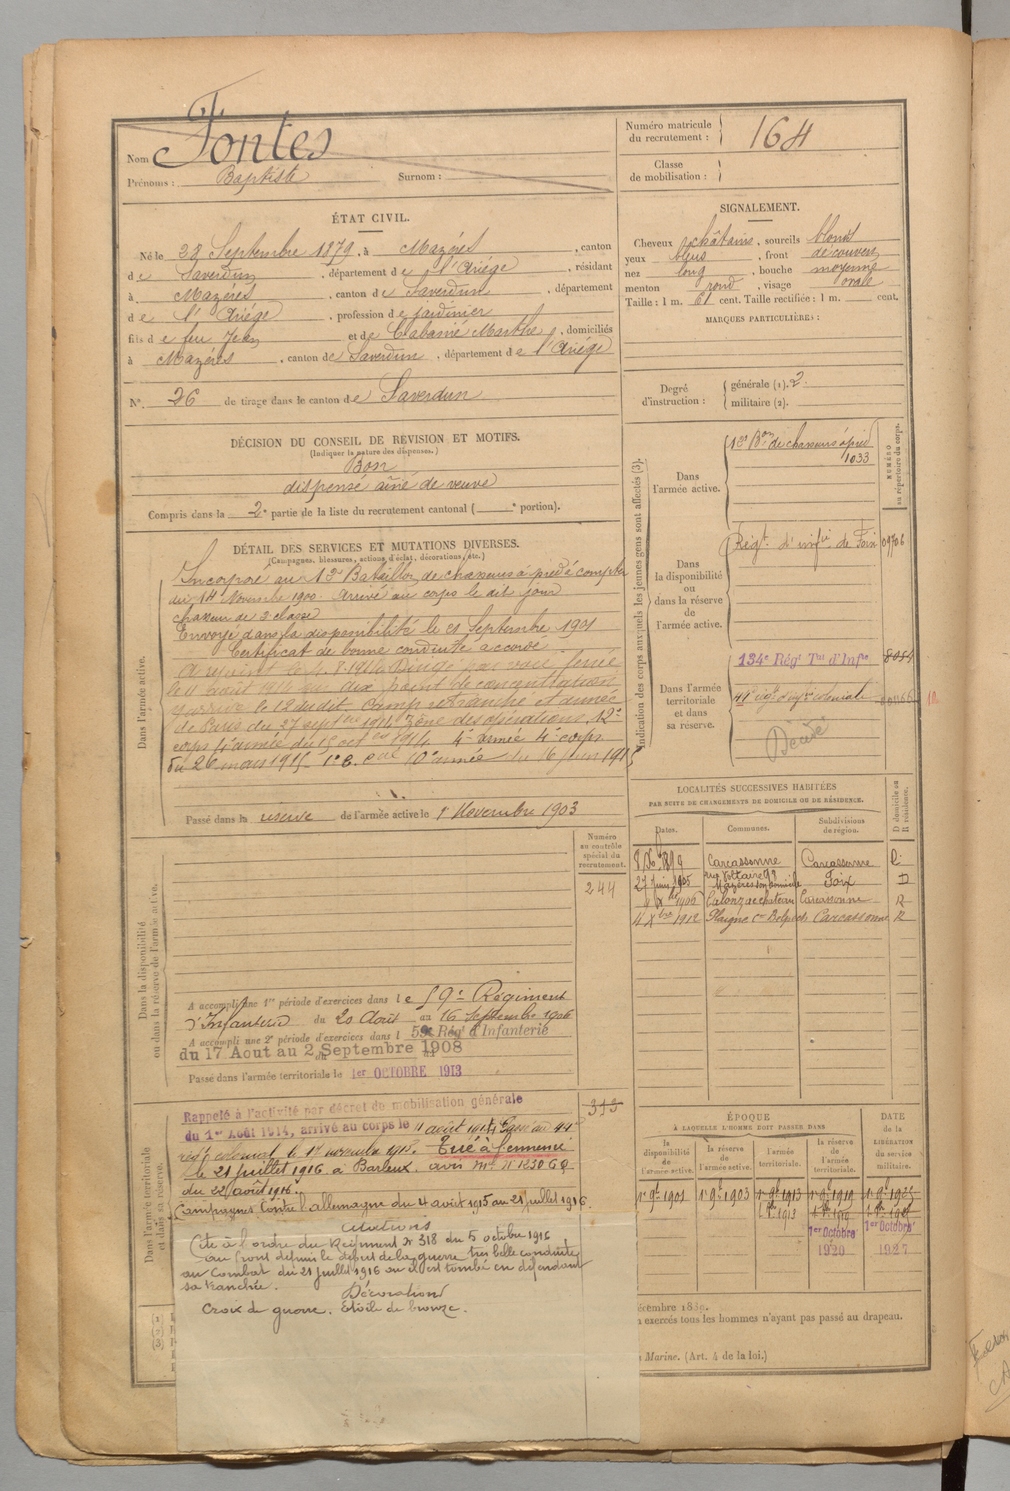 Nom Fontes
Prénoms : Baptiste Surnom :
Numéro matricule du recrutement : 164
Classe de mobilisation :
ÉTAT CIVIL.
Né le 28 Septembre 1879, à Mazères, canton
de Saverdun, département de l'Ariège, résidant
à Mazères, canton de Saverdun, département
de l'Ariège, profession de jardinier
fils de feu Jean et de Cabanié Marthe, domiciliés
à Mazères, canton de Saverdun, département de l'Ariège
N° 26 de tirage dans le canton de Saverdun
SIGNALEMENT.
Cheveux châtains, sourcils blonds
yeux bleus, front découvert
nez long, bouche moyenne
menton rond, visage ovale
Taille : 1 m. 61 cent. Taille rectifiée : 1 m. cent.
MARQUES PARTICULIÈRES :
Degré d'instruction : générale (1). 2
militaire (2).
DÉCISION DU CONSEIL DE RÉVISION ET MOTIFS.
(Indiquer la nature des dispenses.)
Bon
dispensé aîné de veuve
Compris dans la 2e partie de la liste du recrutement cantonal ( e portion).
DÉTAIL DES SERVICES ET MUTATIONS DIVERSES.
(Campagnes, blessures, actions d'éclat, décorations, etc.)
Dans l'armée active.
Incorporé au 12e Bataillon de chasseurs à pied à compter
du 14 Novembre 1900. Arrivé au corps le dit jour
chasseur de 2e classe
Envoyé dans la disponibilité le 21 Septembre 1901
Certificat de bonne conduite accordé
A rejoint le 4.8.1914 Dirigé par voie ferrée
le 11 août 1914 au dix point de concentration
y arrive le 12 dudit camp retranché et armée
de Paris du 27 septbre 1914 zône des opérations, 12e
corps 4e armée du 15 oct 1914. 4e armée 4e corps
du 26 mars 1915 1er C. cal 10e armée du 16 juin 1915
Passé dans la réserve de l'armée active le 1er Novembre 1903
Dans la disponibilité ou dans la réserve de l'armée active.
Numéro au contrôle spécial du recrutement.
244
A accompli une 1re période d'exercices dans le 59e Régiment
d'Infanterie du 20 Août au 16 Septembre 1906
A accompli une 2e période d'exercices dans l 59e Régt d'Infanterie
du 17 Aout au 2 Septembre 1908
Passé dans l'armée territoriale le 1er OCTOBRE 1913
Dans l'armée territoriale et dans sa réserve.
315
Rappelé à l'activité par décret de mobilisation générale
du 1er Août 1914, arrivé au corps le 4 août 1914 Passé au 44e
régt colonial le 1er novembre 1915. Tué à l'ennemi
le 21 juillet 1916 à Barleux. avis ml N° 1230 GQ
du 22 août 1916.
Campagnes Contre l'allemagne du 4 août 1915 au 21 juillet 1916
Citations
Cité à l'ordre du Régiment N° 318 du 5 octobre 1916
au front depuis le départ de la guerre, très belle conduite
au combat du 21 juillet 1916 où il est tombé en défendant
sa tranchée.
Décoration
Croix de guerre. Etoile de bronze.
Indication des corps auxquels les jeunes gens sont affectés (3).
NUMÉRO au répertoire du corps.
Dans l'armée active.
12e Bon de chasseurs à pied
1033
Dans la disponibilité ou dans la réserve de l'armée active.
Régt d'infie de Foix
Dans l'armée territoriale et dans sa réserve.
134e Régt Tal d'Infie 8054
44e régt d'infie coloniale
Décédé
LOCALITÉS SUCCESSIVES HABITÉES
PAR SUITE DE CHANGEMENTS DE DOMICILE OU DE RÉSIDENCE.
Dates. Communes. Subdivisions de région. D domicile ou R résidence.
8 Xbre 1899 Carcassonne rue Voltaire 92 Carcassonne R
27 Juin 1905 Mazères son domicile Foix D
1906 Carcassonne R
4 Xbre 1912 Plaigne con Belpech Carcassonne R
ÉPOQUE
A LAQUELLE L'HOMME DOIT PASSER DANS
la disponibilité de l'armée active.
la réserve de l'armée active.
l'armée territoriale.
la réserve de l'armée territoriale.
DATE de la LIBÉRATION du service militaire.
1903
1913
1919
1er Octobre 1920
1er Octobre 1927
écembre 1889.
exercés tous les hommes n'ayant pas passé au drapeau.
Marine. (Art. 4 de la loi.)